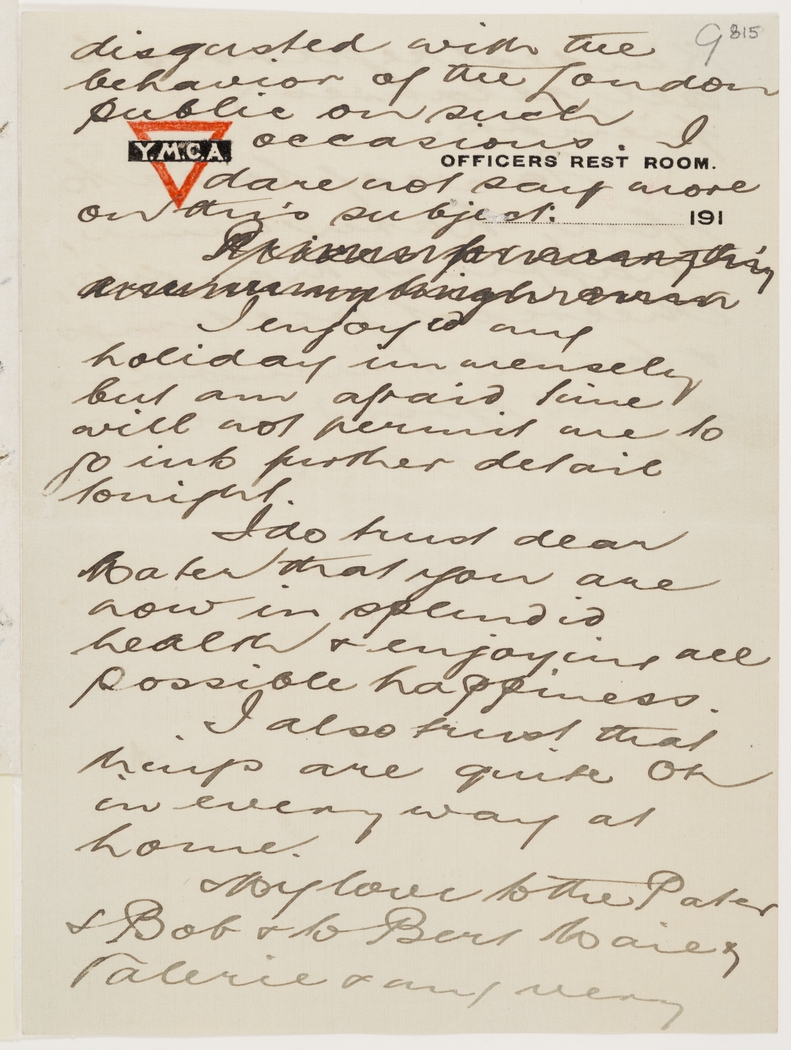 9 815
disgusted with the
behavior of the London
public on such
occasions. I
Y.M.C.A
OFFICERS' REST ROOM.
dare not say more
on this subject.
191
I enjoyed my
holiday immensely
but am afraid time
will not permit me to
go into further detail
tonight.
I do trust dear
Mater that you are
now in splendid
health & enjoying all
possible happiness.
I also trust that
things are quite OK
in every way at
home.
My love to the Pater
& Bob & to Bert
Valerie & my very